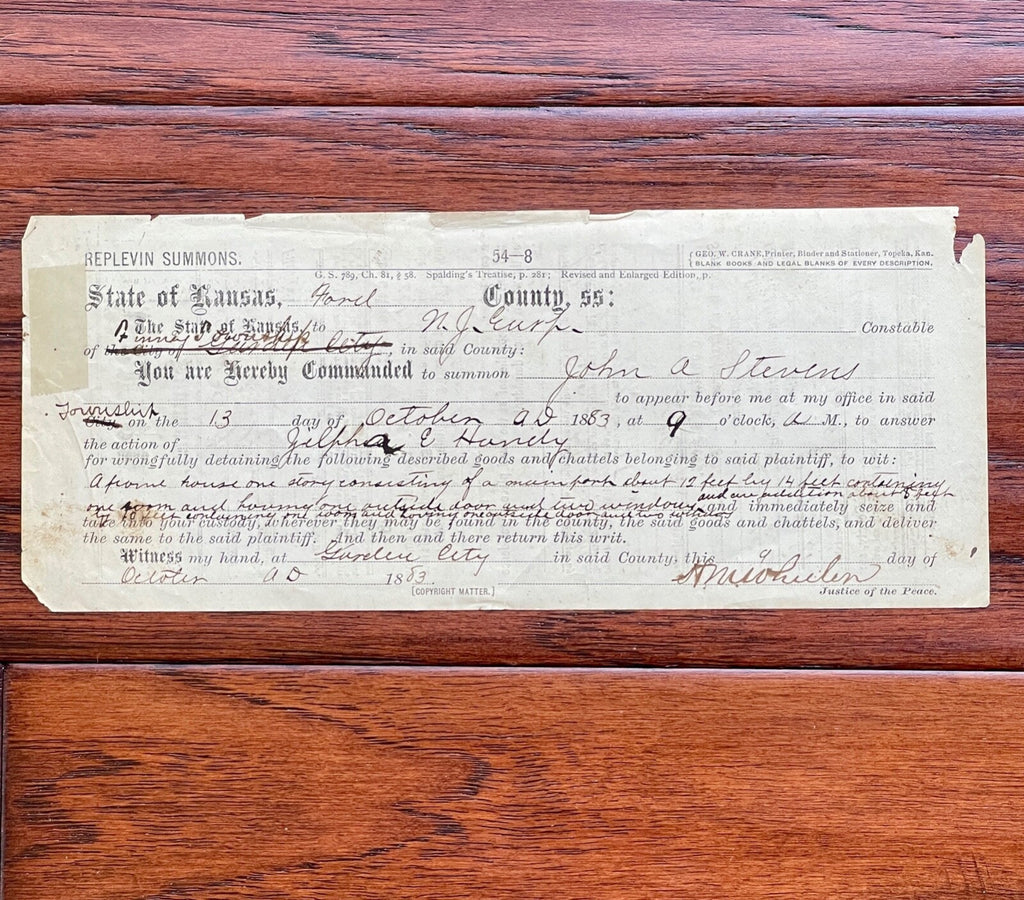 REPLEVIN SUMMONS. 54—8 { GEO. W. CRANE, Printer, Binder and Stationer, Topeka, Kan.
BLANK BOOKS AND LEGAL BLANKS OF EVERY DESCRIPTION.
G. S. 789, Ch. 81, § 58. Spalding's Treatise, p. 281; Revised and Enlarged Edition, p.
State of Kansas, Ford County, ss:
The State of Kansas, to N. J. Earp. Constable
Finney Township
of the City of Garden City, in said County:
You are Hereby Commanded to summon John A Stevens
to appear before me at my office in said
Township
City, on the 13 day of October AD 1883, at 9 o'clock, A M., to answer
the action of Zilpha E Handy
for wrongfully detaining the following described goods and chattels belonging to said plaintiff, to wit:
A frame house one story consisting of a main part about 12 feet by 14 feet containing
one room and having one outside door and two windows and an addition about 8 feet
and immediately seize and
take into your custody, wherever they may be found in the county, the said goods and chattels, and deliver
the same to the said plaintiff. And then and there return this writ.
Witness my hand, at Garden City in said County, this 9 day of
October AD 1883 Justice of the Peace.
[COPYRIGHT MATTER.]